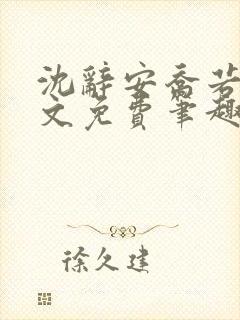 沈辞安乔若
文免费笔趣
徐久建